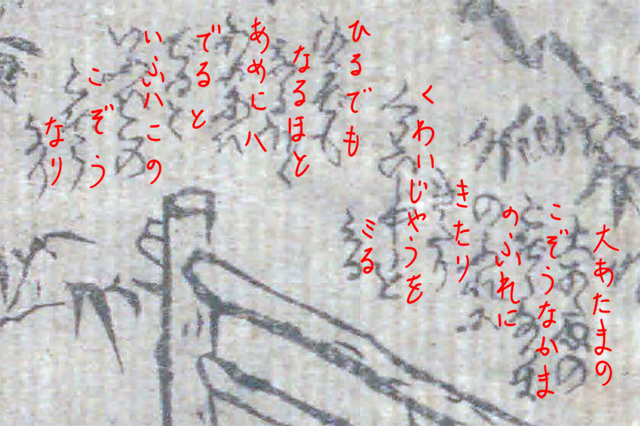 大あたまの
こぞうなかま
のふれに
きたり
くわいじやうを
ミる
ひるでも
なるほと
あめにハ
でると
いふハこの
こぞう
なり